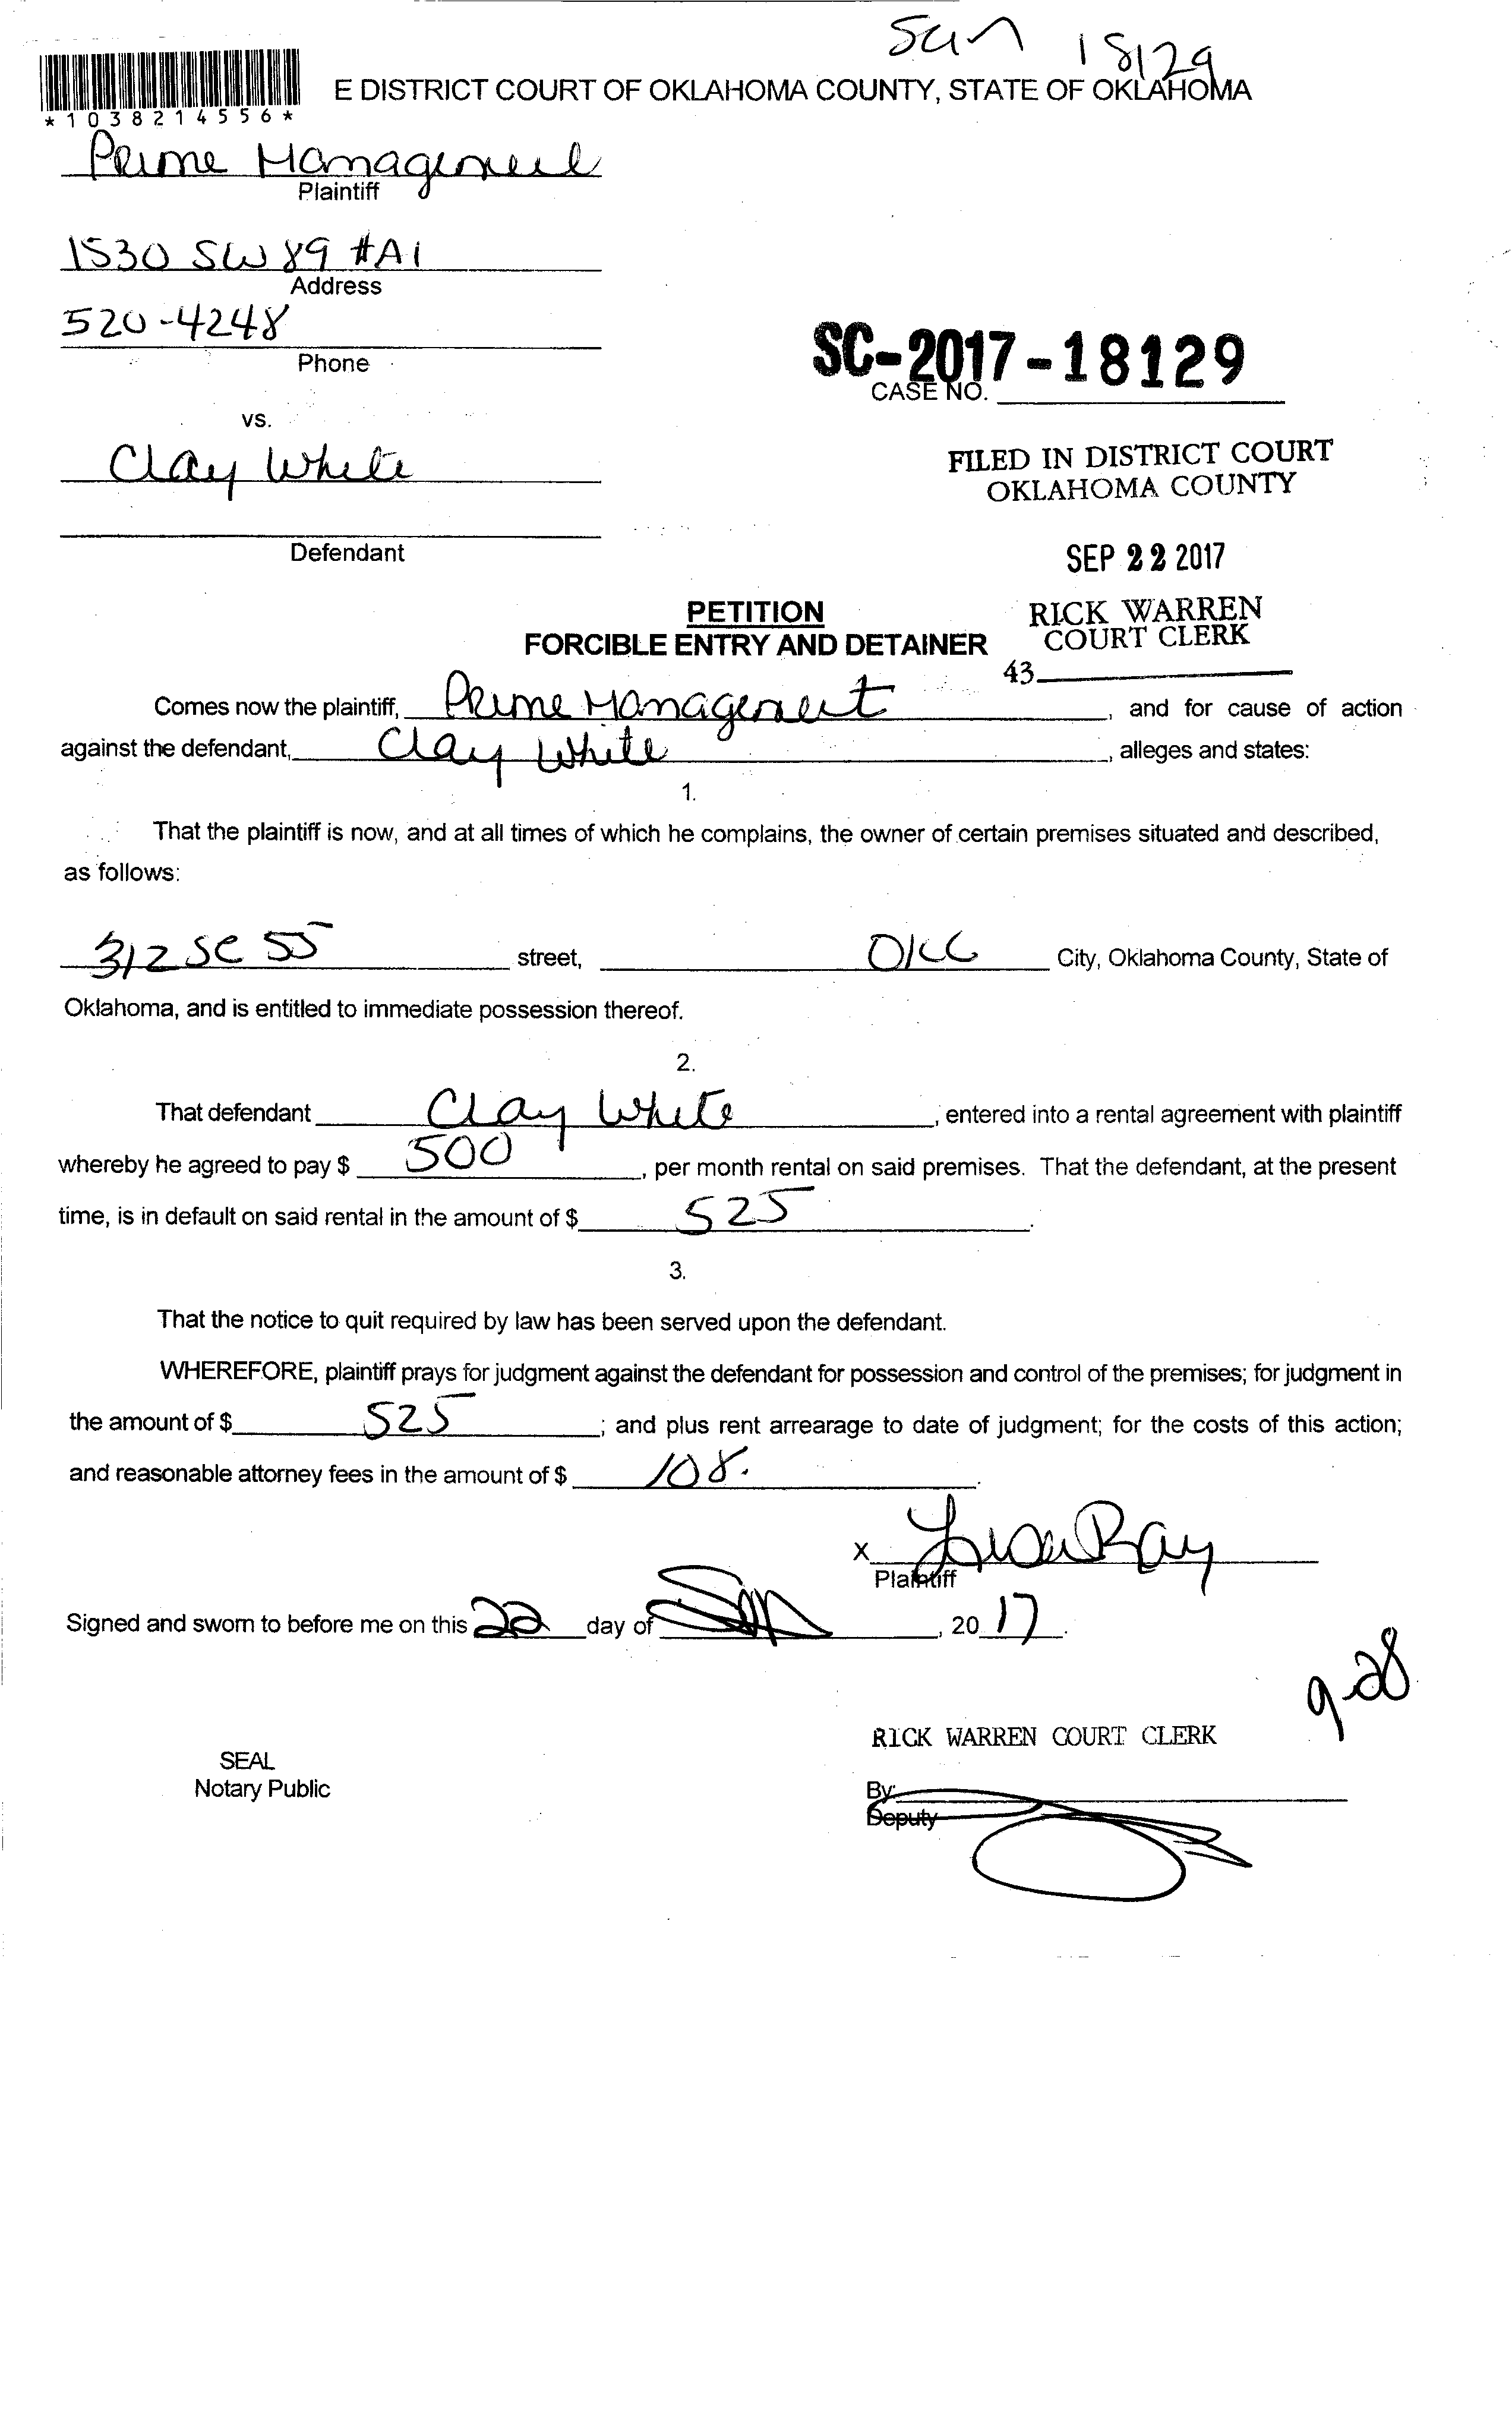 San 18129
E DISTRICT COURT OF OKLAHOMA COUNTY, STATE OF OKLAHOMA
*1038214556*
Prime Management
Plaintiff
1530 SW 89 #A1
Address
520-4248
Phone
SC-2017-18129
CASE NO.
vs.
Clay White
FILED IN DISTRICT COURT
OKLAHOMA COUNTY
Defendant
SEP 22 2017
PETITION
RICK WARREN
FORCIBLE ENTRY AND DETAINER
COURT CLERK
43
Comes now the plaintiff, Prime Management, and for cause of action
against the defendant, Clay White, alleges and states:
1.
That the plaintiff is now, and at all times of which he complains, the owner of certain premises situated and described,
as follows:
312 SE 55 street, OKC City, Oklahoma County, State of
Oklahoma, and is entitled to immediate possession thereof.
2.
That defendant Clay White, entered into a rental agreement with plaintiff
whereby he agreed to pay $ 500, per month rental on said premises. That the defendant, at the present
time, is in default on said rental in the amount of $ 525.
3.
That the notice to quit required by law has been served upon the defendant.
WHEREFORE, plaintiff prays for judgment against the defendant for possession and control of the premises; for judgment in
the amount of $ 525; and plus rent arrearage to date of judgment; for the costs of this action;
and reasonable attorney fees in the amount of $ 108.
x Ray
Plaintiff
Signed and sworn to before me on this 22 day of Sep, 2017.
9-28
RICK WARREN COURT CLERK
SEAL
Notary Public
By:
Deputy